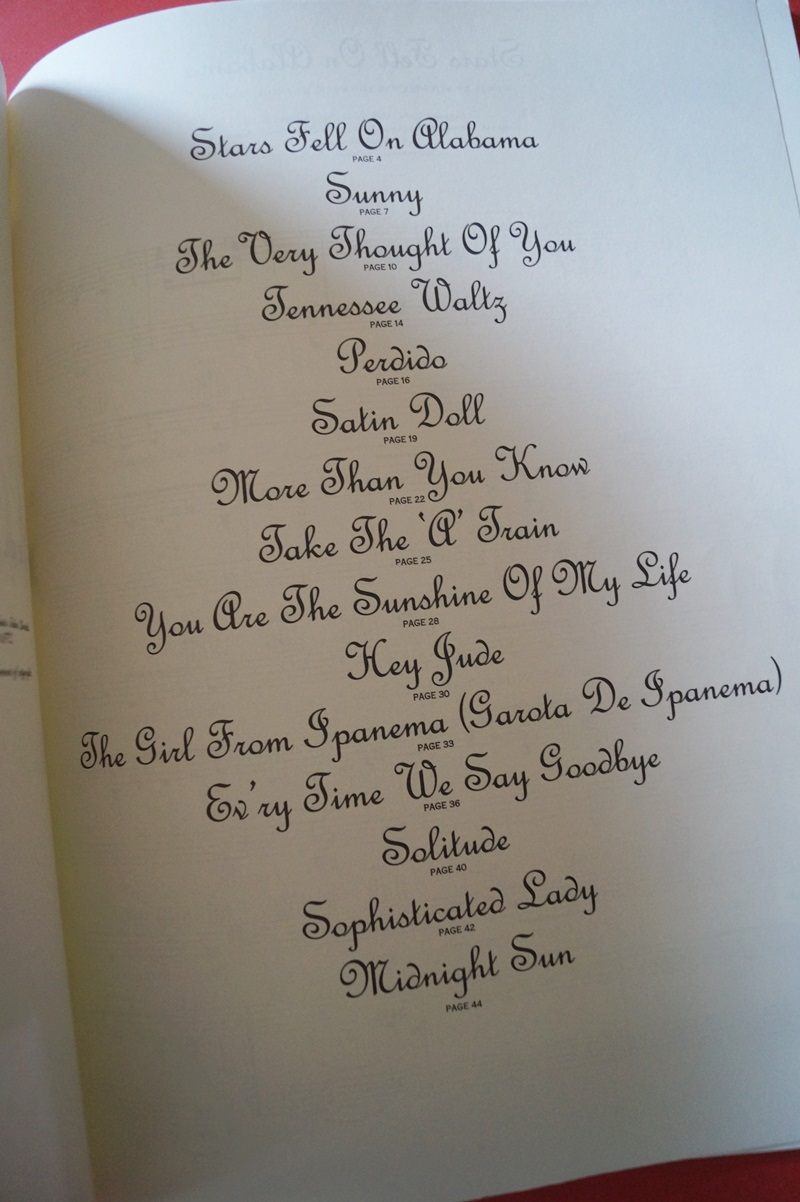 Stars Fell On Alabama
PAGE 4
Sunny
PAGE 7
The Very Thought Of You
PAGE 10
Tennessee Waltz
PAGE 14
Perdido
PAGE 16
Satin Doll
PAGE 19
More Than You Know
PAGE 22
Take The 'A' Train
PAGE 25
You Are The Sunshine Of My Life
PAGE 28
Hey Jude
PAGE 30
The Girl From Ipanema (Garota De Ipanema)
PAGE 33
Ev'ry Time We Say Goodbye
PAGE 36
Solitude
PAGE 40
Sophisticated Lady
PAGE 42
Midnight Sun
PAGE 44